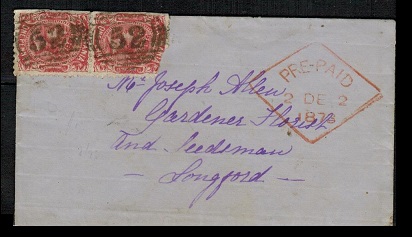 52 52
PRE-PAID
2 DE 2
187
Mr Joseph Allen
Gardener Florist
and Seedsman
— Longford —